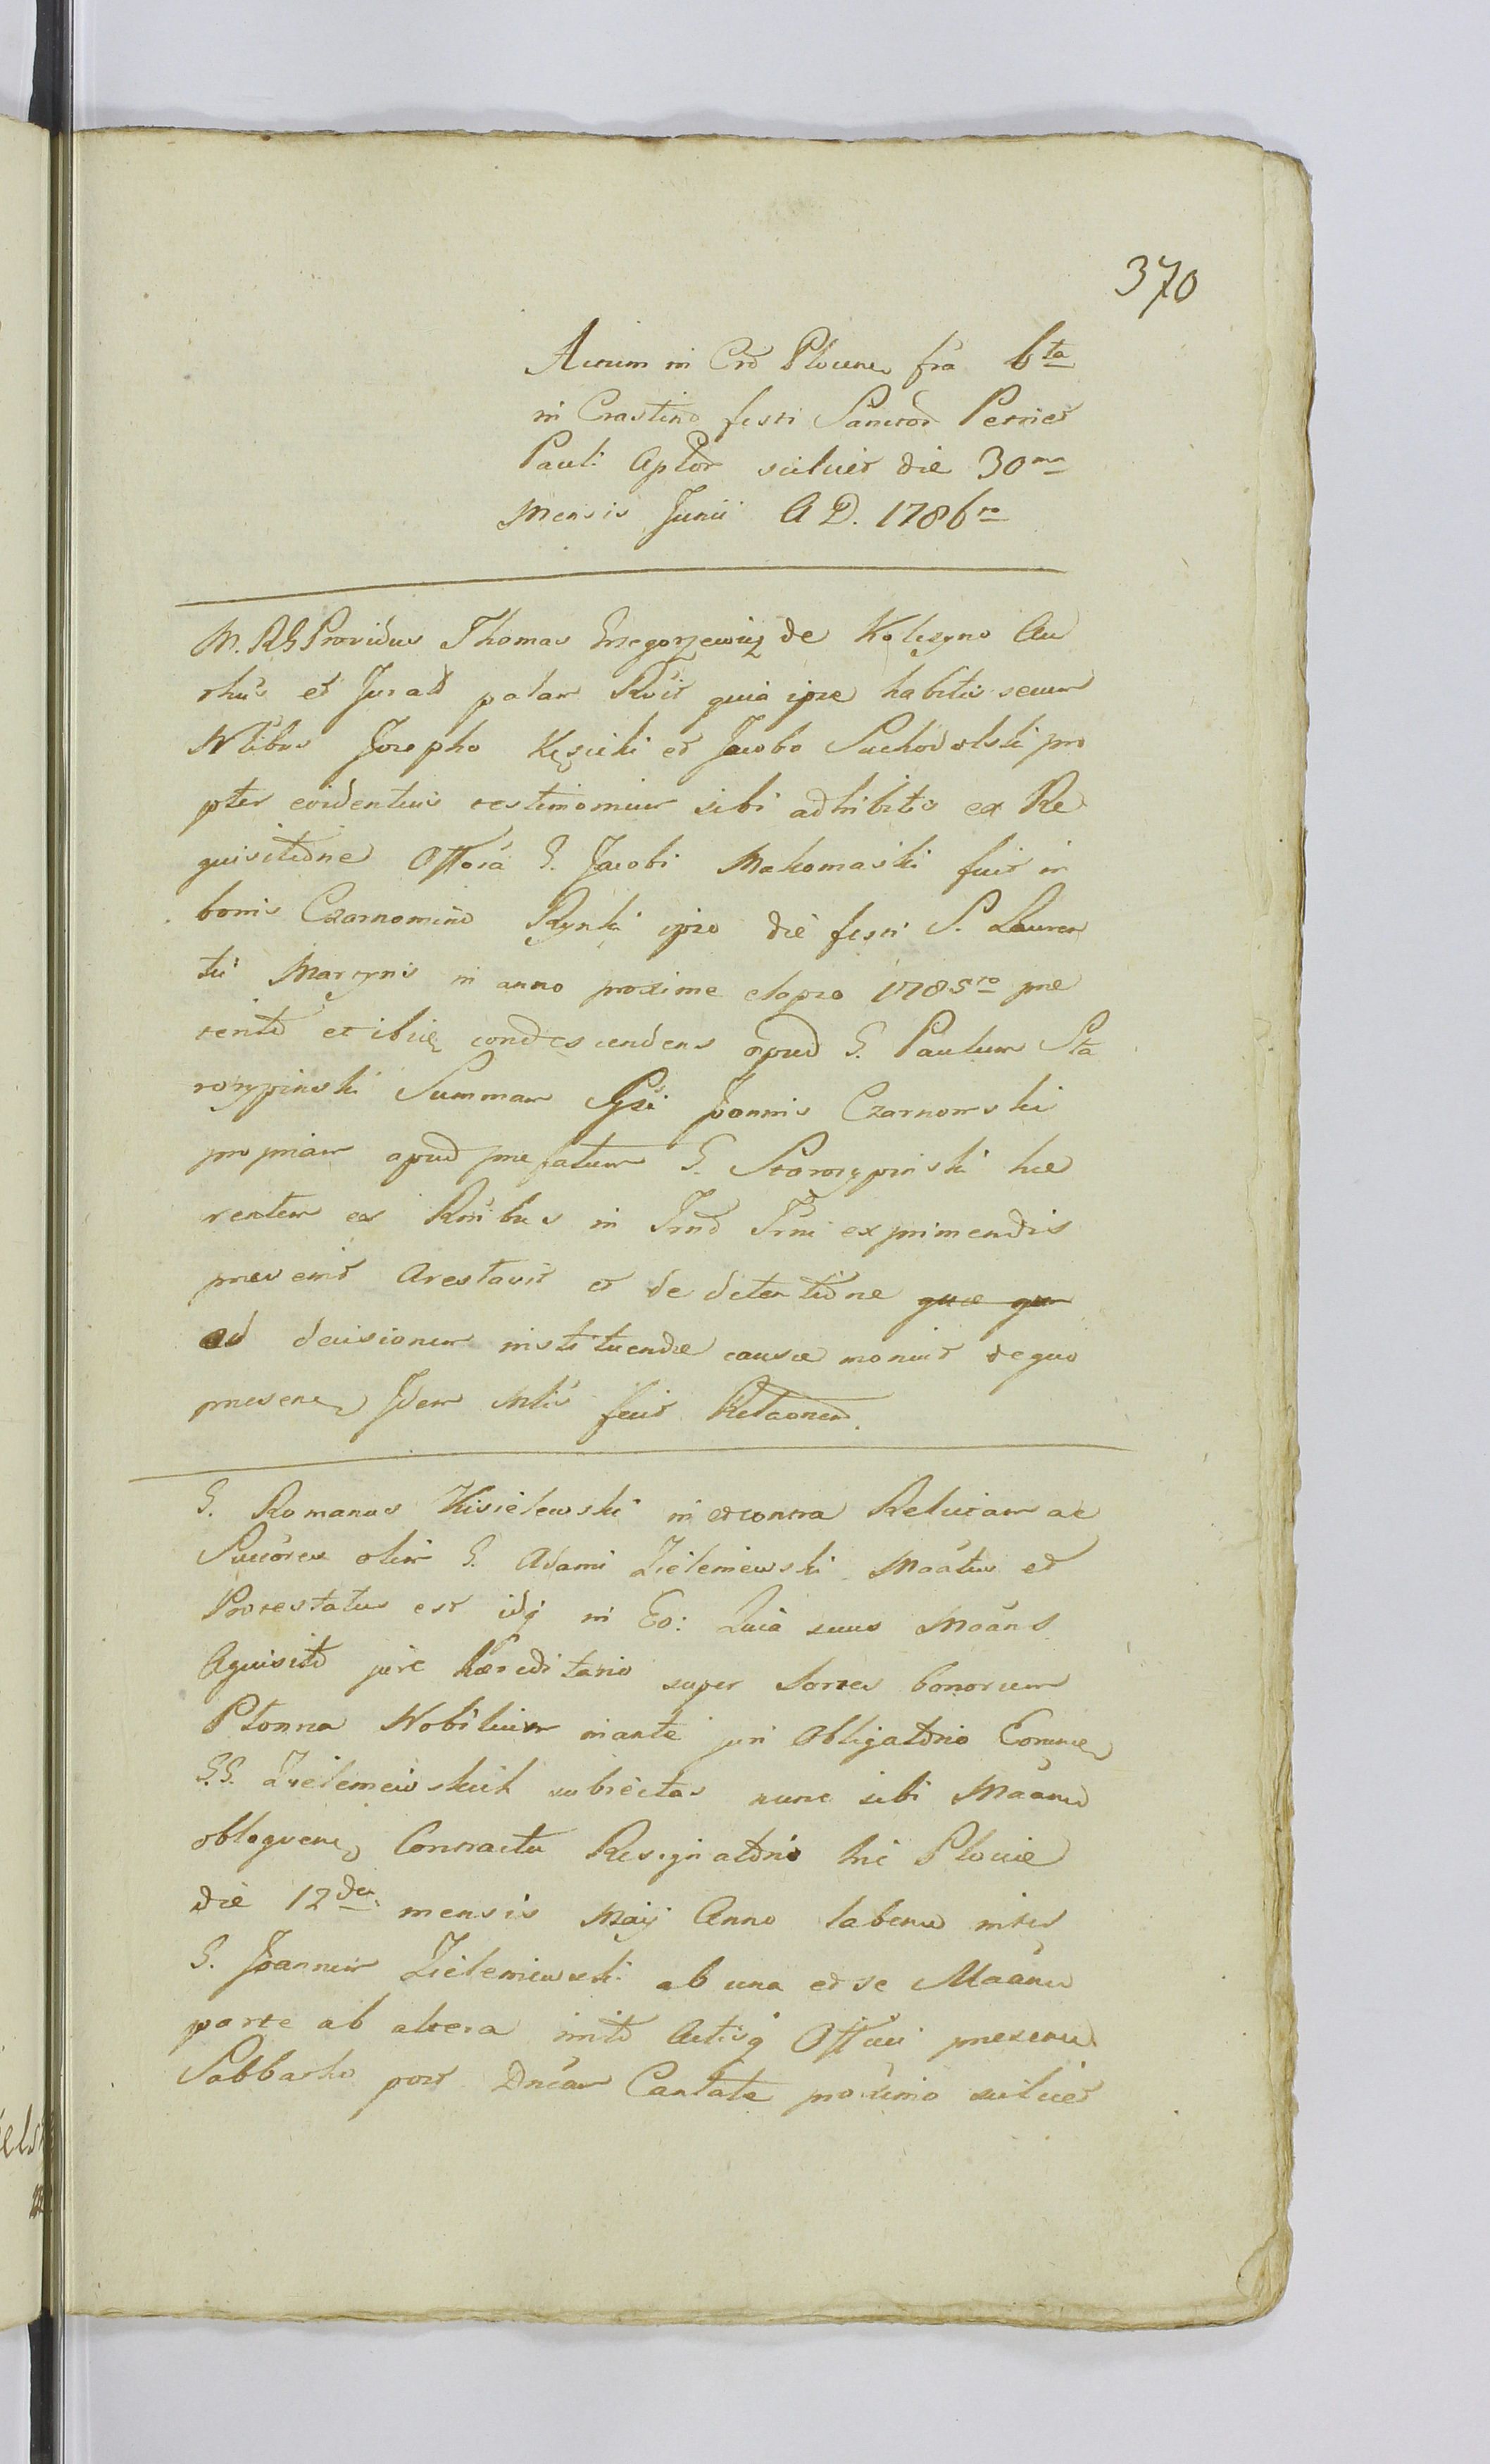 370
Actum in Crō Plocen fra 6ta
in Crastino festi Sanctor Petri et
Pauli Aptor scilicet die 30ma
Mensis Junii A D. 1786to
M. RG Providus Thomas Grzegorzewicz de Kolczyno Au
thus et Jurat palam Rvit quia ipse habitis secum
Nlibus Josepho Kęsicki et Jacobo Suchodolski pro
pter evidentius testimonium sibi adhibitis ex Re
quisitione Offosa G. Jacobi Makomaski fuit in
bonis Czarnomino Rynki ipso die festi S. Lauren
tii Martyris in anno proxime elapso 1785to pre
sentd et ibiq condescendens apud G. Paulum Sta
rozypinski Summam Gsi Joannis Czarnowski
propriam apud prefatum G. Starozypinski hae
rentem ex Rnibus in Trno Trni exprimendis
prevenit Arestavit et de detentione quae quu
ad decisionem instituendae causae monuit de quo
presenes Idem Mlis fecit Relaonem.
G. Romanus Kisielewski in et contra Relictam ac
Succores olim G. Adami Zieleniewski Maatus et
Protestatus est idq in Eo: Quia suus Maans
Aquisito jure haereditario super sortes bonorum
Płonna Nobilium inante juri Obligatorio Commen
G.G. Zieleniewskich subiectas nunc sibi Maanti
obloquens Contractu Resignatorio hic Plociae
die 12da mensis Maij Anno labente inter
G. Joannem Zieleniewski ab una et se Maante
parte ab altera inito Actisq Offcii presentis
Sabbatho post Dncam Cantate proximo scilicet